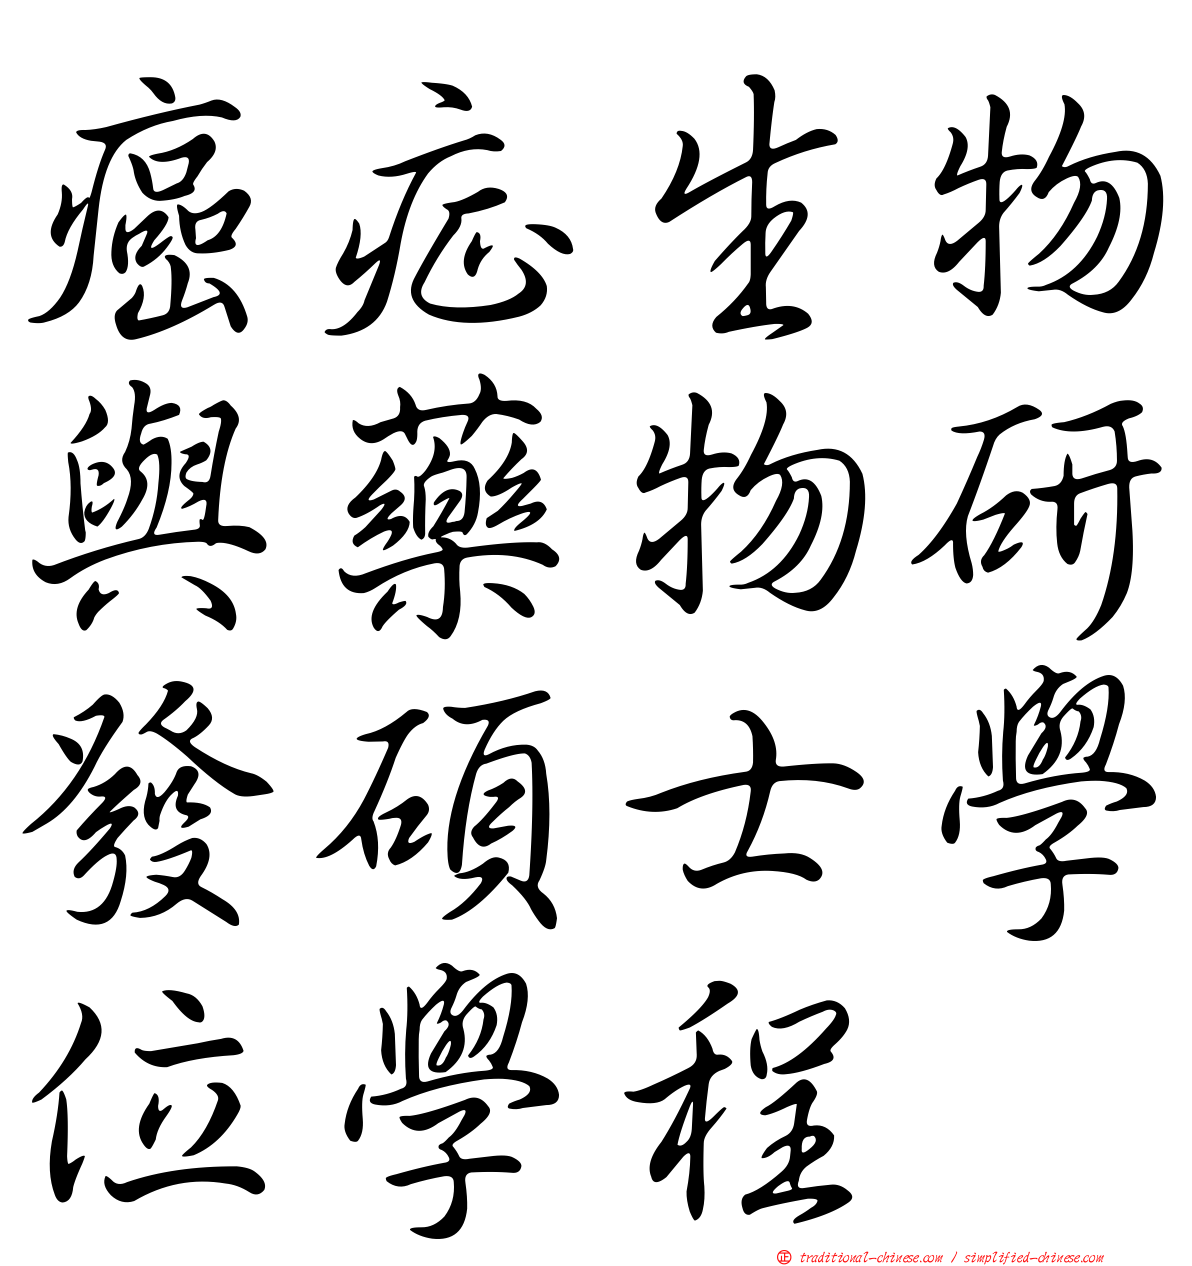 癌症生物
與藥物研
發碩士學
位學程
正 traditional-chinese.com / simplified-chinese.com